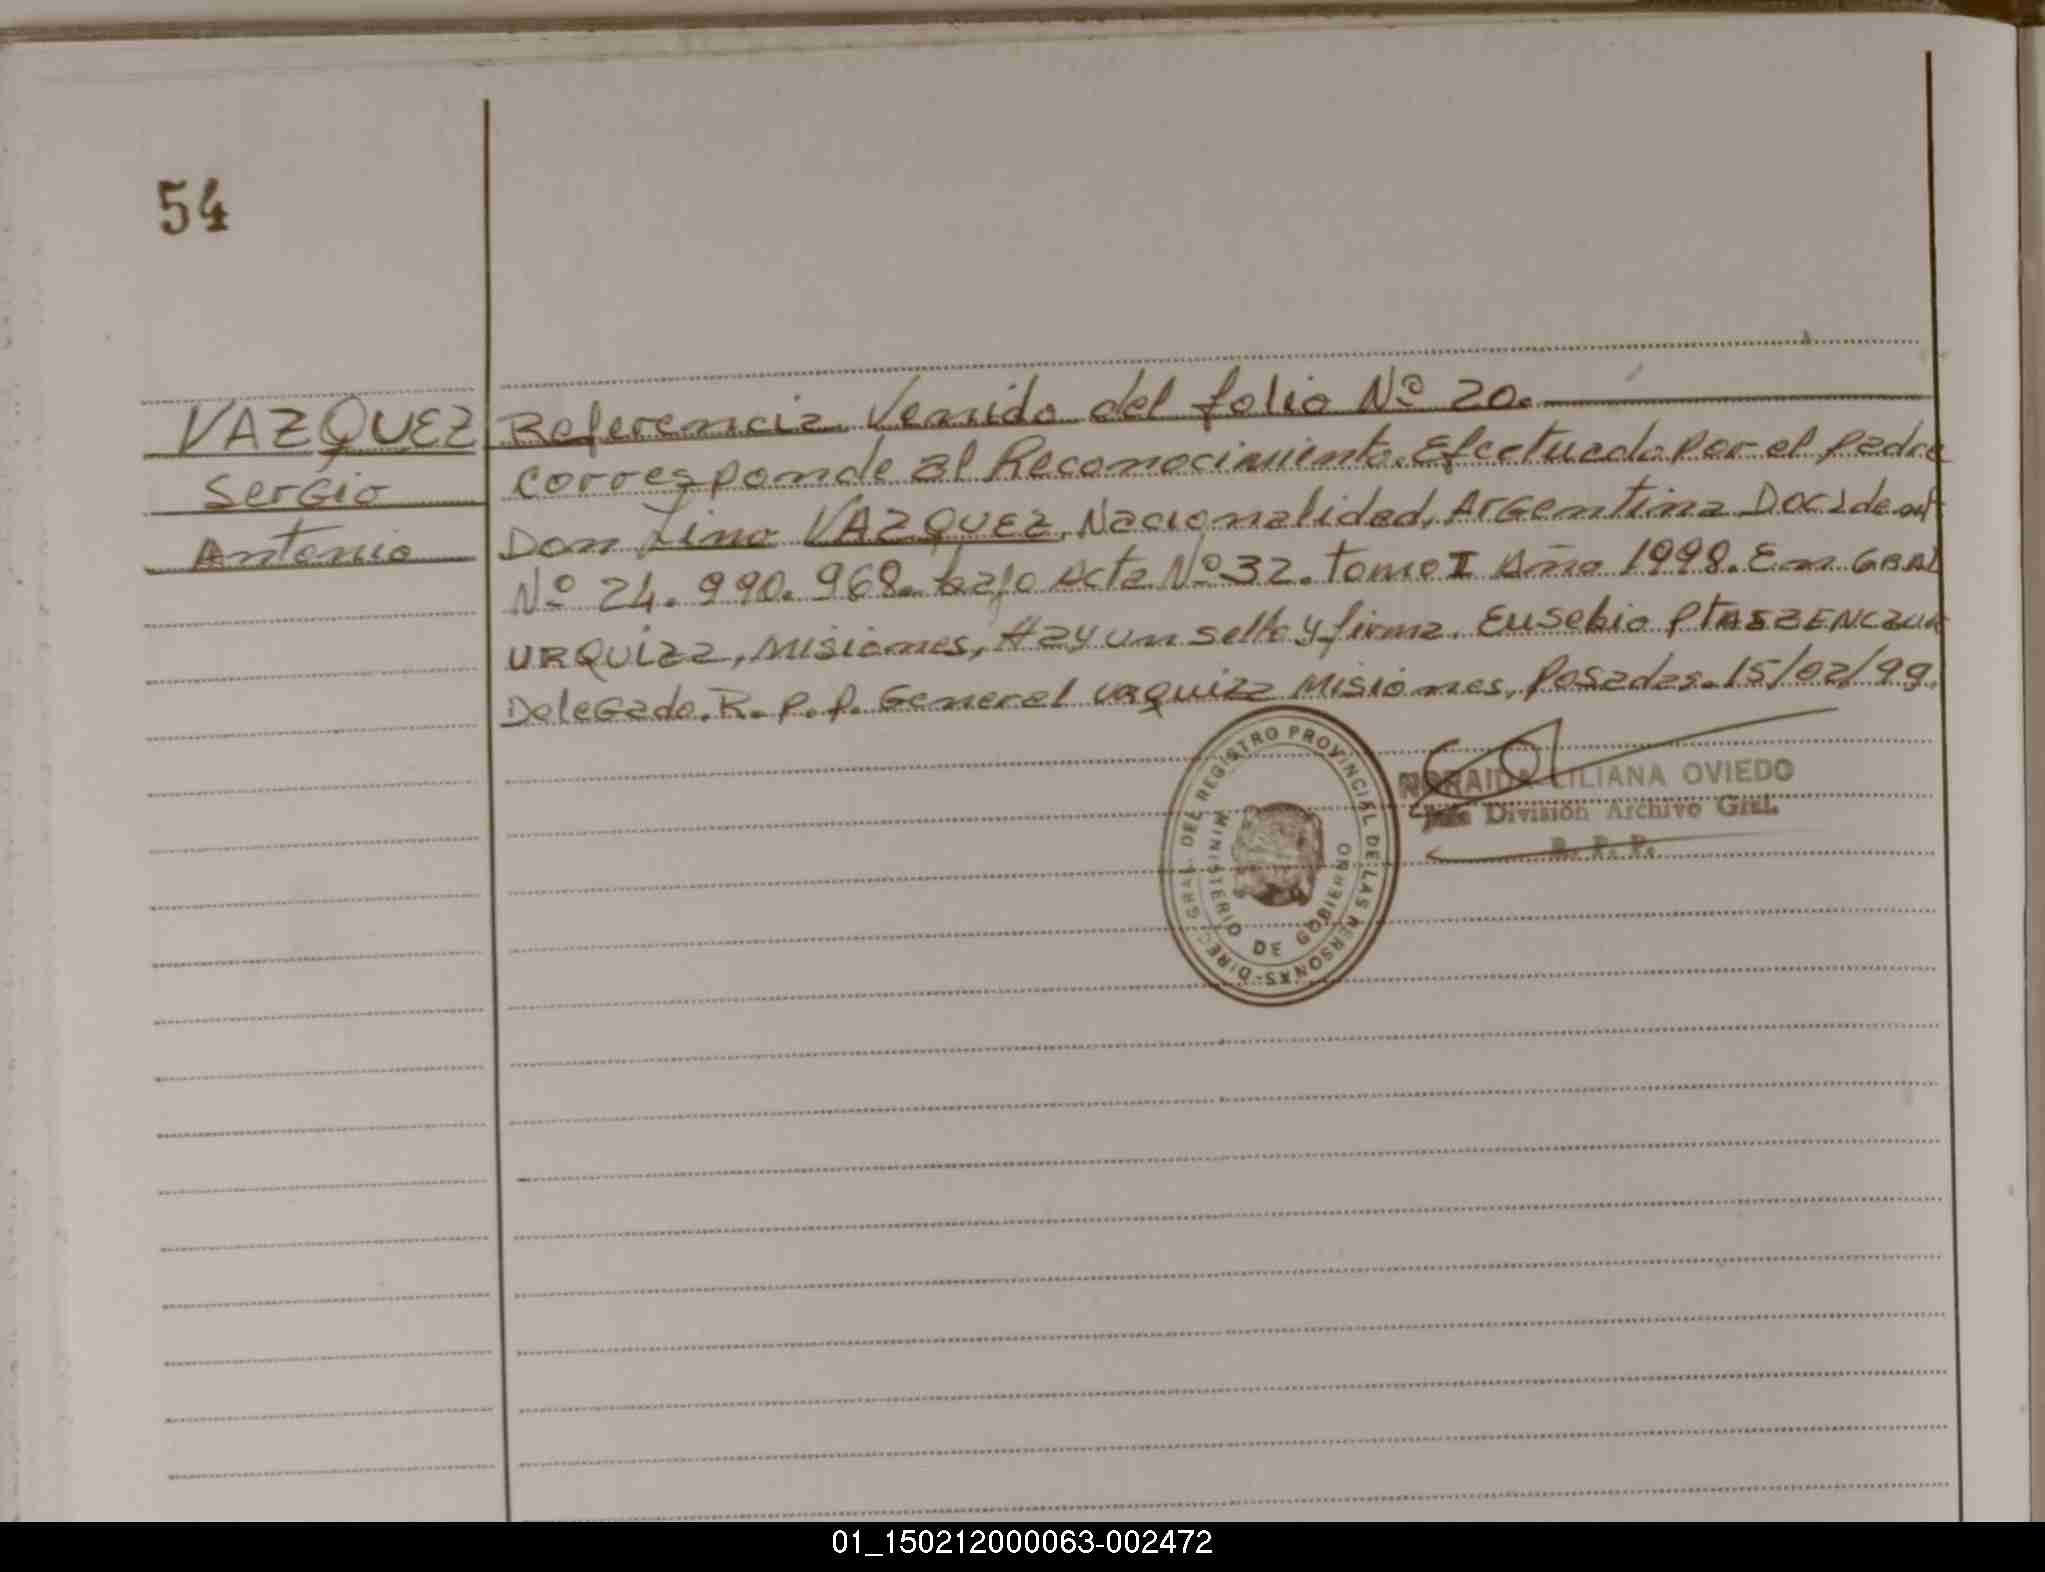 54
VAZQUEZ
Sergio
Antonio
Referencia Venido del folio Nº 20.
Corresponde al Reconocimiento. Efectuado por el padre
Don Lino VAZQUEZ, Nacionalidad, Argentina Doc. Ident
Nº 24.990.968. bajo Acta Nº 32. tomo I Año 1998. En GRAL
URQUIZA, Misiones, Hay un sello y firma. Eusebio PTASZENCZUK
Delegado. R. P. P. General Urquiza Misiones, Posadas. 15/02/99.
DIREC. GRAL. DEL REGISTRO PROVINCIAL DE LAS PERSONAS
MINISTERIO DE GOBIERNO
NORAIDA LILIANA OVIEDO
Jefa División Archivo Gral.
R. P. P.
01_150212000063-002472